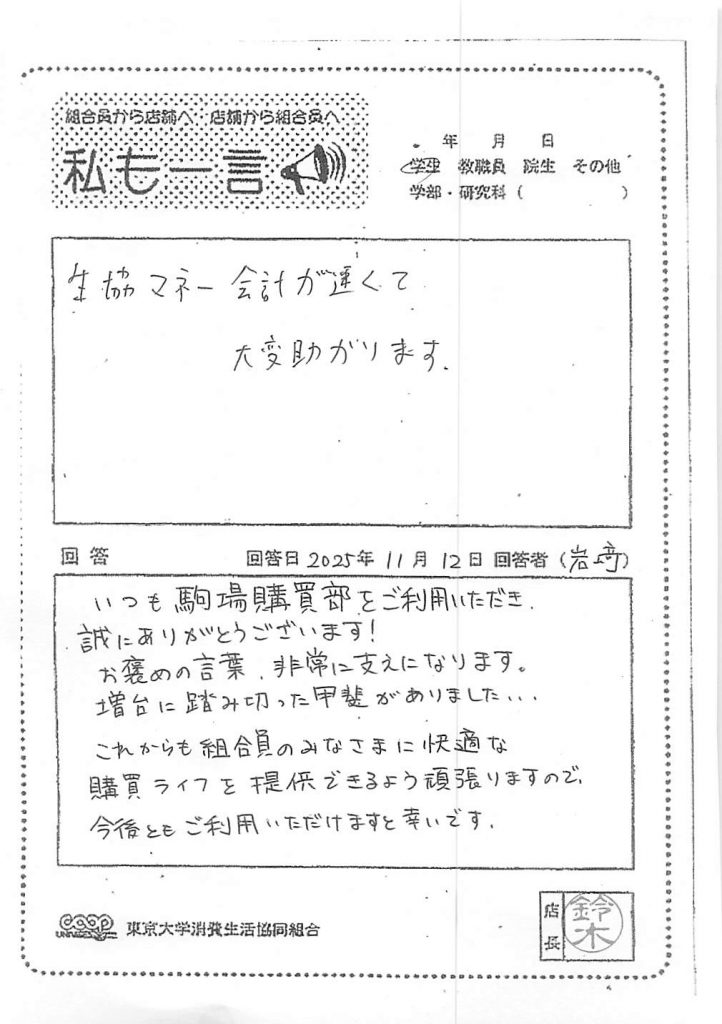 組合員から店舗へ 店舗から組合員へ
私も一言
年 月 日
学生 教職員 院生 その他
学部・研究科 ( )
生協マネー 会計が速くて
大変助かります.
回答 回答日 2025年 11月 12日 回答者 (岩﨑)
いつも駒場購買部をご利用いただき、
誠にありがとうございます!
お褒めの言葉、非常に支えになります。
増台に踏み切った甲斐がありました...
これからも組合員のみなさまに快適な
購買ライフを提供できるよう頑張りますので、
今後ともご利用いただけますと幸いです.
coop
UNIV
東京大学消費生活協同組合
店長 鈴木